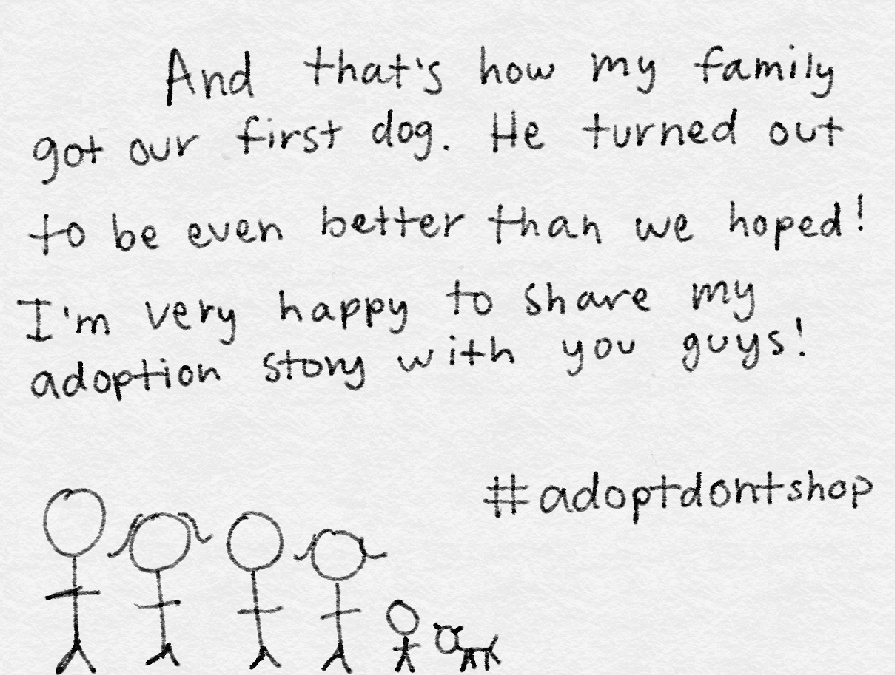 And that's how my family
got our first dog. He turned out
to be even better than we hoped!
I'm very happy to share my
adoption story with you guys!
#adoptdontshop